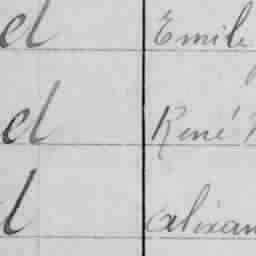 el Emile
el René
l alixan